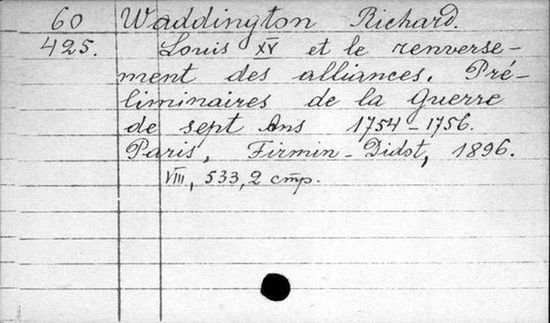 60 Waddington Richard.
425. Louis XV et le renverse-
ment des alliances. Pré-
liminaires de la Guerre
de sept Ans 1754-1756.
Paris, Firmin-Didot, 1896.
VIII, 533, 2 стр.